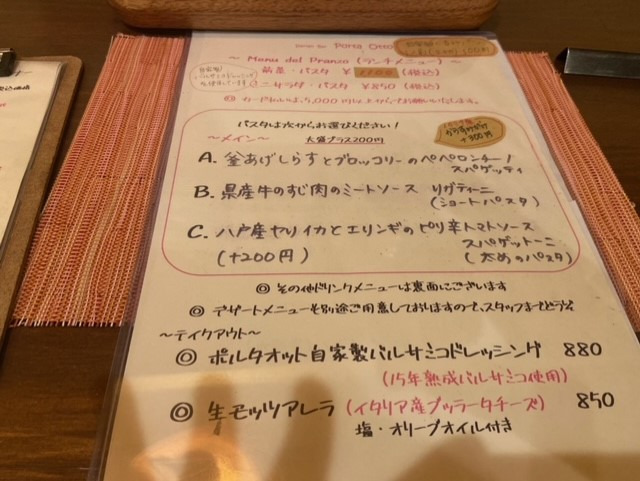 Porta Otto
～ Menu del Pranzo (ランチメニュー) ～
前菜・パスタ ¥1100 (税込)
ミニサラダ・パスタ ¥850 (税込)
パスタは次からお選びください!
大盛プラス200円
～メイン～
+300円
A. 釜あげしらすとブロッコリーのペペロンチーノ
スパゲッティ
B. 県産牛のすじ肉のミートソース リガティーニ
(ショートパスタ)
C. 八戸産ヤリイカとエリンギのピリ辛トマトソース
(+200円) スパゲットーニ
(太めのパスタ)
◎ その他ドリンクメニューは裏面にございます
◎ デザートメニューも別途ご用意しておりますので、スタッフまでどうぞ
～テイクアウト～
◎ ポルタオット自家製バルサミコドレッシング 880
(15年熟成バルサミコ使用)
◎ 生モッツアレラ (イタリア産ブッラータチーズ) 850
塩・オリーブオイル付き